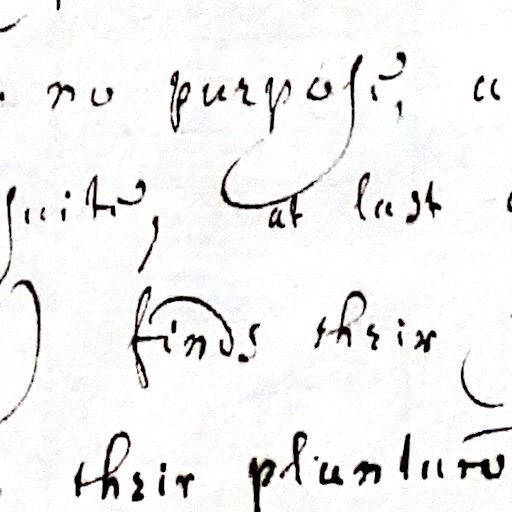 no purpose,
suite, at last
finds their
their